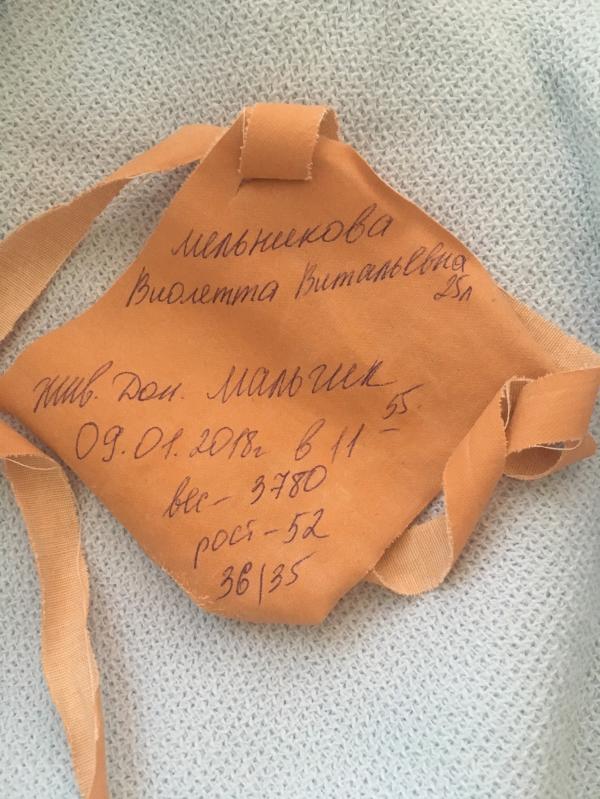 Мельникова
Виолетта Витальевна
25л
жив. Дон. Мальчик
09.01.2018г в 11 55
вес - 3780
рост - 52
36/35